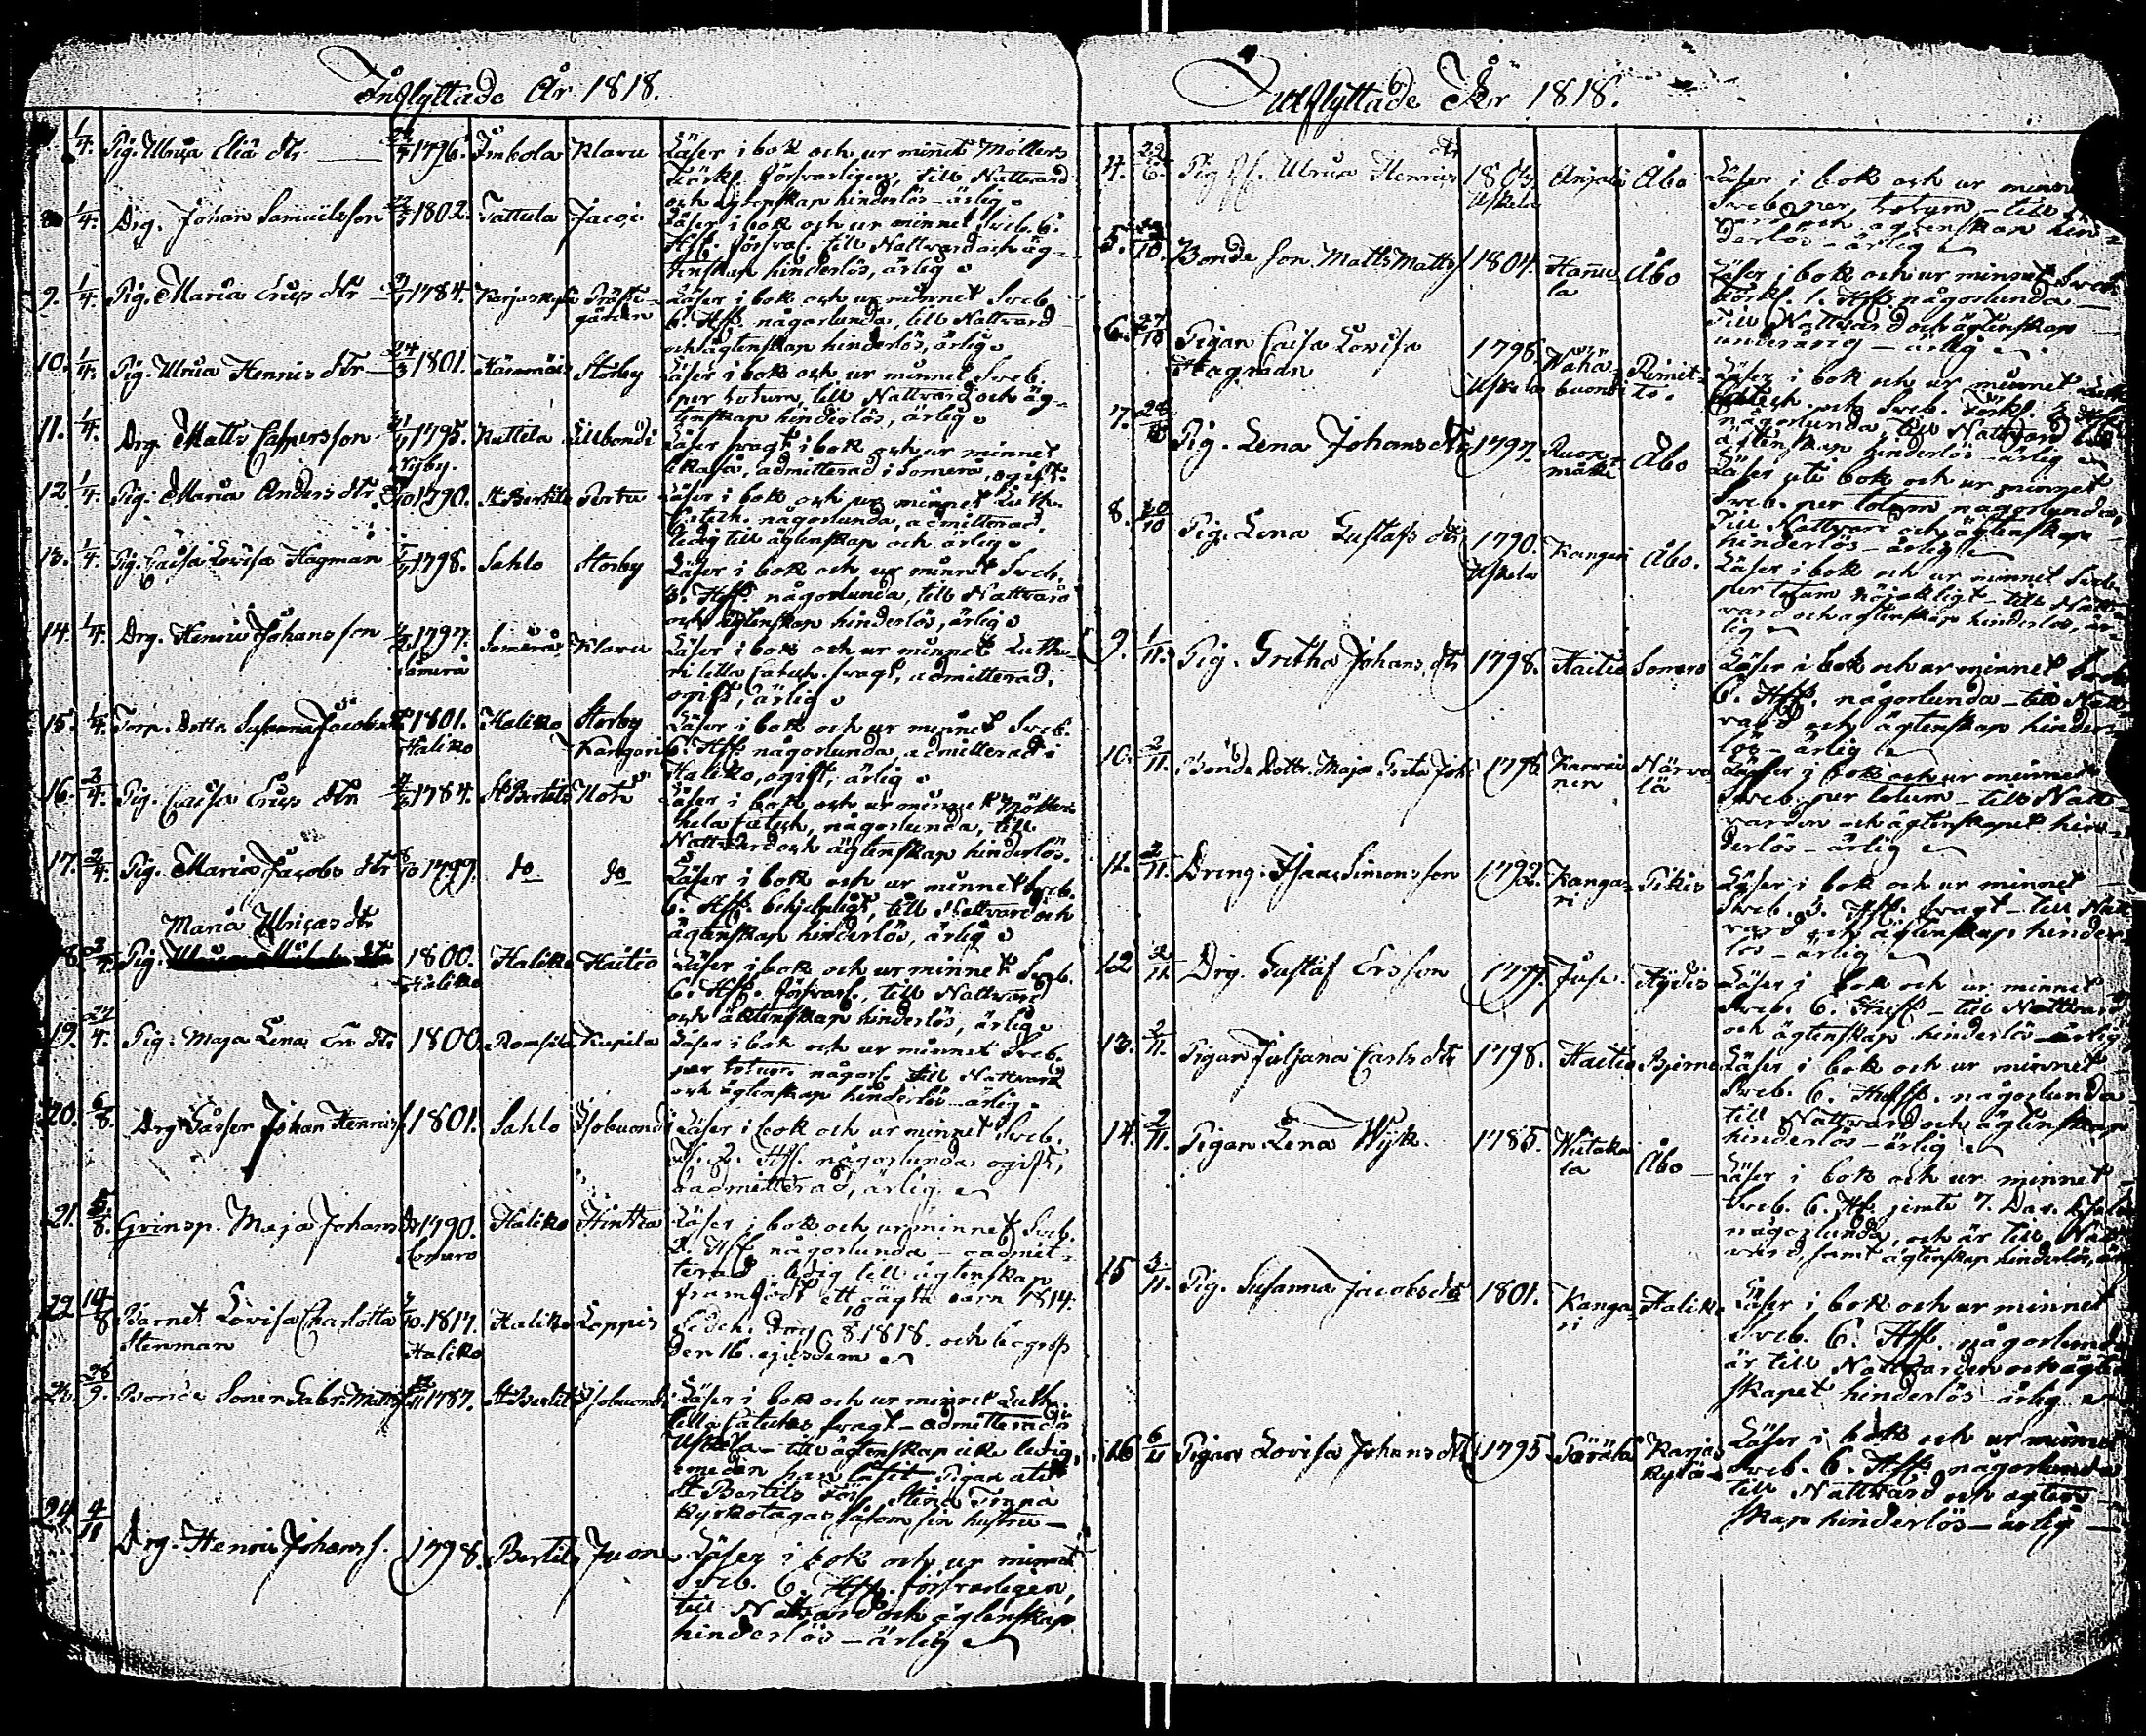 Inflyttade År 1818.
1/4. Pig. Ulrica Eliæ dtr 1796. Inkola Klaru Läser i bok och ur minnet Möllers
förkl. försvarligen, till Nattvard
och ägtenskap hinderlös - ärlig
1/4. Drg. Johan Samuelsson 1802. Tattula Jacoi Läser i bok och ur minnet Sveb. 6.
Hfst. försvarl. till Nattvard och äg-
tenskap hinderlös, ärlig
9. 1/4. Pig. Maria Ericsdtr 1784. Karjaskylä Präste- Läser i bok och ur minnet Sveb.
gården 6. Hfst. någorlunda, till Nattvard
och ägtenskap hinderlös, ärlig
10. 1/4. Pig. Ulrica Henricsdtr 24/3 1801. Storby Läser i bok och ur minnet Sveb.
per totum, till Nattvard och äg-
tenskap hinderlös, ärlig
11. 1/4. Drg. Matts Caspersson 1795. Kuttila Lillbondi Läser svagt i bok och ur minnet
likaså, admitterad i Somero, ogift.
12 1/4. Pig. Maria Andersdtr 1790. St Bertils Perta Läser i bok och ur minnet Luth.
Catech. någorlunda, admitterad.
ledig till ägtenskap och ärlig
13. 1/4. Pig. Caisa Lovisa Hagman 1798. Sahlo Storby Läser i bok och ur minnet Sveb.
3. Hfst. någorlunda, till Nattvard
och ägtenskap hinderlös, ärlig
14. 1/4. Drg. Henric Johansson 1797. Somero Klaru Läser i bok och ur minnet Luthe-
Somero ri lilla Catech. svagt, admitterad,
ogift, ärlig
15. 1/4. Torp. Dottr. Susanna Jacobsdtr 1801. Haliko Storby Läser i bok och ur minnet Sveb.
Haliko Kangari 6. Hfst. någorlunda admitterad i
Haliko, ogift, ärlig
16. 2/4. Pig. Caisa Ericsdtr 1784. St Bertils Läser i bok och ur minnet Möllers
hela Catech. någorlunda, till
Nattvard och ägtenskap hinderlös.
17. 2/4. Pig. Maria Jacobsdtr 1799. do do Läser i bok och ur minnet Sveb.
6. Hfst. behjelpligt, till Nattvard och
ägtenskap hinderlös, ärlig
Maria Ulricasdtr
8. Pig. 1800. Haliko Haitio Läser i bok och ur minnet Sveb.
Haliko 6. Hfst. försvarl., till Nattvard
och äktenskap hinderlös, ärlig
19. 27/4. Pig. Maja Lena Er. dtr 1800. Romsila Kupila Läser i bok och ur minnet Sveb.
per totum någorl. till Nattvard
och ägtenskap hinderlös - ärlig
20. 6/8. Drg Johan Henricss 1801. Sahlo Isobuondi Läser i bok och ur minnet Sveb.
2. Hfst. någorlunda ogift,
oadmitterad, ärlig.
21. 5/8. Grinsp. Maja Johansdr 1790. Haliko Hintka Läser i bok och ur minnet Sveb.
Somero 2. Hfst någorlunda - oadmit-
terad - ledig till ägtenskap
framfödt ett oägta barn 1814.
22 14/8 Barnet Lovisa Charlotta 1817. Haliko Loppis 10/8 1818. och begrofs
Stenman Haliko den 16. ejusdem
28/9. Bonde Sonen Gabr. Mattss 1787. St Bertils Isobuondi Läser i bok och ur minnet Luth.
lilla Cateches svagt - admitterad i
Uskela - till ägtenskap icke ledig,
emedan han låfit Pigan
St Bertils
Kyrkotagas såsom sin hustru -
24. 4/11 Drg. Henric Johanss. 1798. Bertils Juon Läser i bok och ur minnet
Sveb. 6. Hfst. försvarligen,
till Nattvard och ägtenskap
hinderlös - ärlig
Utflyttade År 1818.
4. Pig Ulrica Henrics dtr Anjala Åbo Läser i bok och ur minn
Uskela Sveb. per totum - till
vard och ägtenskap hin-
derlös - ärlig
5. Bonde Son Matts Matts 1804. Hannu- Åbo Läser i bok och ur minnet Sveb
la förkl. 1. Hfst någorlunda
till Nattvard och ägtenskap
underårig - ärlig
6. 27/10 Pigan Caisa Lovisa 1798. Wähä- Rimit- Läser i bok och ur minnet Luth
Hagman Uskela buondi to. Catech. och Sveb. Förkl. 3 Hfst
någorlunda, till Nattvard och
ägtenskap hinderlös - ärlig
7. 28/10 Pig. Lena Johansdtr 1797. Ruon Åbo Läser uti bok och ur minnet
mäki Sveb. per totum någorlunda,
till Nattvard och ägtenskap
hinderlös - ärlig
8. Pig. Lena Gustafsdtr 1790. Kangari Åbo. Läser i bok och ur minnet Sveb.
Uskela per totum nöjaktigt - till Natt-
vard och ägtenskap hinderlös, är-
lig
9. 1/11. Pig. Gretha Johansdtr 1798. Haitio Somero Läser i bok och ur minnet Sveb.
6. Hfst. någorlunda - till Natt-
vard och ägtenskap hinder-
lös - ärlig
10. 2/11. Bonde dottr. Maja Greta Joh 1796 Karvai- Närva Läser i bok och ur minnet
nen lä Sveb. per totum - till Natt-
varden och ägtenskapet hin-
derlös - ärlig
11. 2/11. Dreng. Isaac Simonsson 1792. Kanga- Pikis Läser i bok och ur minnet
ri Sveb. 3. Hfst. svagt - till Natt
vard och ägtenskap hinder-
lös - ärlig
12 2/11 Drg. Gustaf Ersson 1799. Juse Läser i bok och ur minnet
Sveb. 6. Hufst. - till Nattvard
och ägtenskap hinderlös - ärlig
13. 2/11. Pigan Juljana Carlsdtr 1798. Haitio Bjerno Läser i bok och ur minnet
Sveb. 6. Hufst. någorlunda
till Nattvard och ägtenskap
hinderlös - ärlig
14. 2/11. Pigan Lena Wijk. 1785. Åbo Läser i bok och ur minnet
Sveb. 6. Hfst. jemte 7. Dav. Psalm
någorlunda, och är till Natt
vard samt ägtenskap hinderlös, är
15 3/11. Pig. Susanna Jacobsdtr 1801. Kanga- Haliko Läser i bok och ur minnet
ri Sveb. 6. Hfst. någorlunda
är till Nattvarden och ägten
skapet hinderlös - ärlig
16 6/11 Pigan Lovisa Johansdtr 1795. Karjas Läser i bok och ur minnet
kylä Sveb. 6. Hfst någorlunda
till Nattvard och ägten
skap hinderlös - ärlig